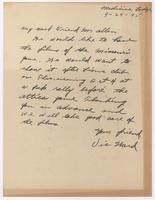 Medicine Lodge
9-29-45
My dear Friend Mr Allen
We would like to have
the films of the Missouri
game. We would want to
show it after dinner club
on this evening Oct 4 at
a Pep rally before the
Attica game. Thanking
you in advance and
we will take good care of
the films
Your friend,
Vic Hurd